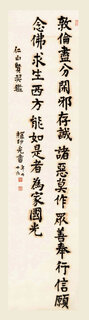 敦倫盡分閑邪存誠諸惡莫作眾善奉行信願
念佛求生西方能如是者為家國光
仁山賢契鑑